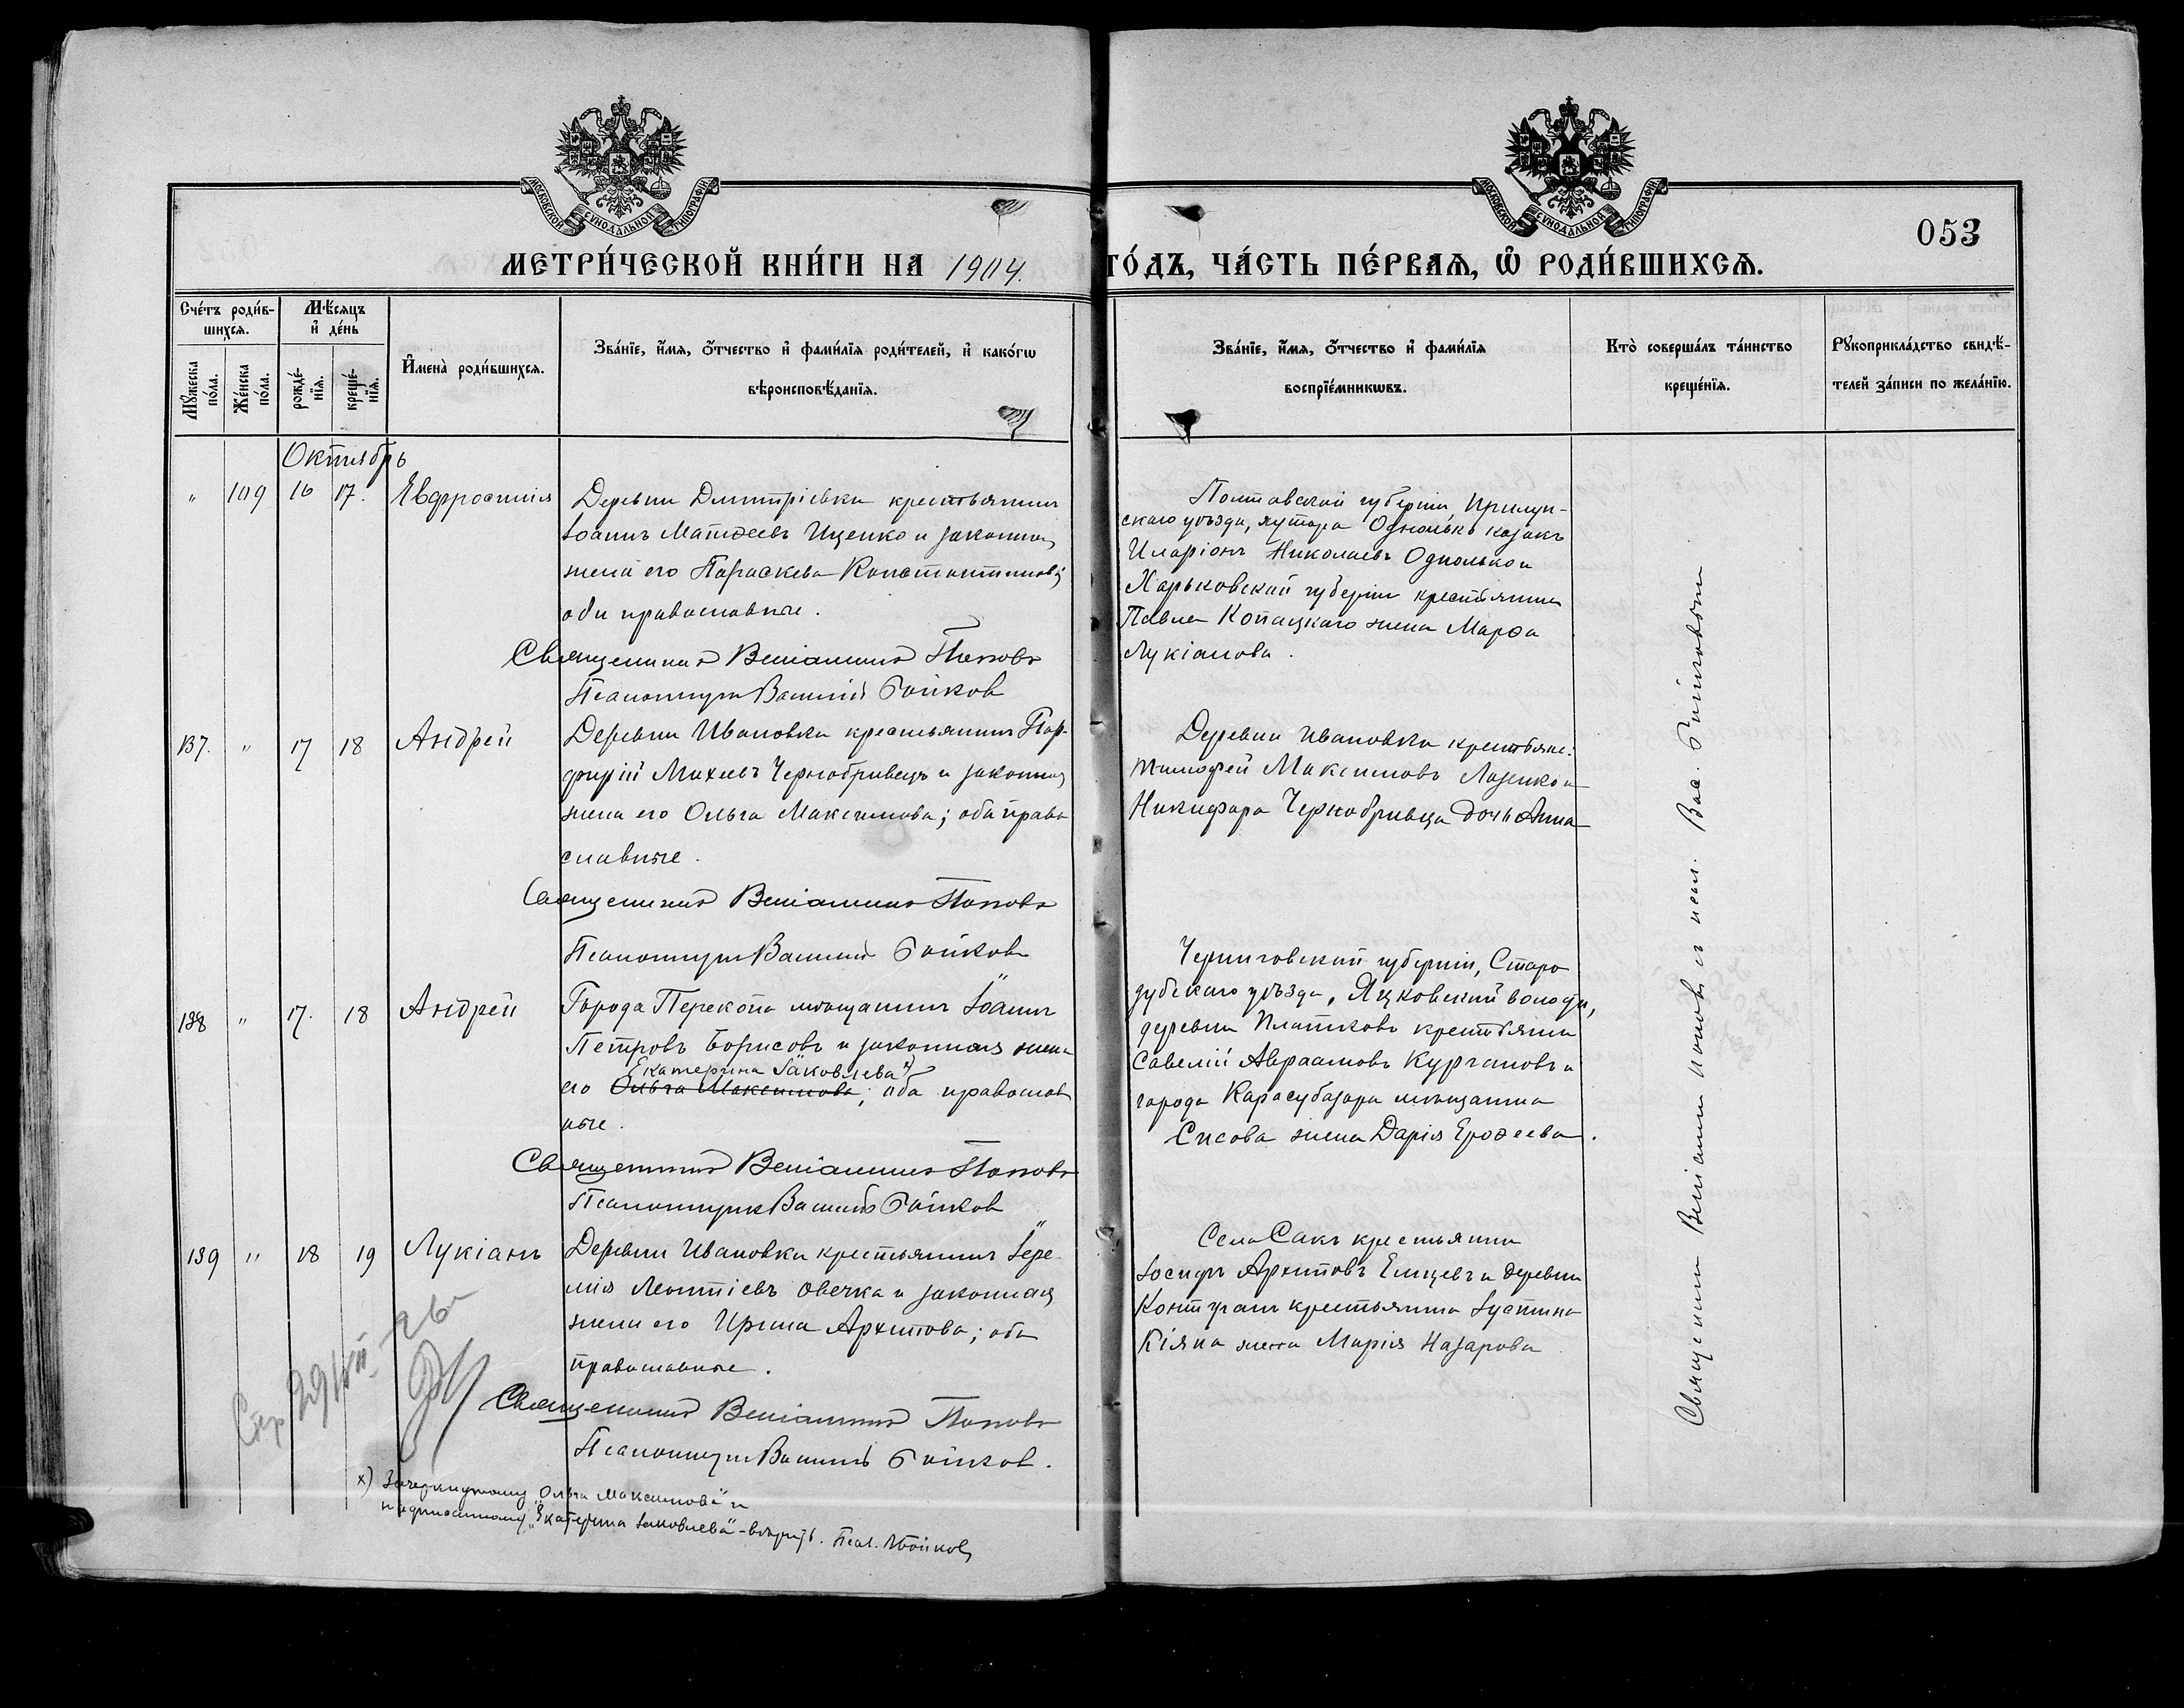 МОСКОВСКОЙ СѴНОДАЛЬНОЙ ТИПОГРАФІИ
МОСКОВСКОЙ СѴНОДАЛЬНОЙ ТИПОГРАФІИ
053
МЕТРИ́ЧЕСКОЙ КНИ́ГИ НА 1904. ГО́ДЪ, ЧА́СТЬ ПЕ́РВАЯ, Ѡ РОДИ́ВШИХСЯ.
Сче́тъ роди́в-
шихся.
Мꙋжеска по́ла.
Же́нска по́ла.
Мѣ́сяцъ
и҆ де́нь
рожде́-
нїя.
креще́-
нїя.
И҆мена̀ роди́вшихся.
Зва́нїе, и҆́мя, ѻ҆́тчество и҆ фами́лїя роди́телей, и҆ како́гѡ
вѣроисповѣ́данїя.
Зва́нїе, и҆́мя, ѻ҆́тчество и҆ фами́лїя
воспрїе́мникѡвъ.
Кто̀ соверша́лъ та́инство
креще́нїя.
Рꙋкоприкла́дство свидѣ́-
телей за́писи по жела́нїю.
Октябрь
" 109 16 17. Евфросинія
Деревни Дмитріевки крестьянинъ
Іоаннъ Матѳеевъ Ищенко и законная
жена его Параскева Константинова;
оба православные.
Священникъ Веніаминъ Поповъ
Псаломщикъ Василій Бойков
Полтавской губерніи, Прилук-
скаго уѣзда, хутора Однолько козакъ
Иларіонъ Николаевъ Однолько и
Харьковской губерніи крестьянина
Павла Копацкаго жена Марѳа
Лукіанова.
137. " 17 18 Андрей
Деревни Ивановки крестьянинъ Пор-
фирій Михеевъ Чернобривецъ и законная
жена его Ольга Максимова; оба право
славные.
Священникъ Веніаминъ Поповъ
Псаломщикъ Василій Бойков
Деревни Ивановки крестьяне:
Тимофей Максимовъ Лазенко и
Никифора Чернобривца дочь Анна
138 " 17. 18 Андрей
Города Перекопа мѣщанинъ Іоаннъ
Петровъ Борисовъ и законная жена
Екатерина Іаковлева х)
его Ольга Максимова; оба православ
ные.
Священникъ Веніаминъ Поповъ
Псаломщикъ Василій Бойков
Черниговской губерніи, Старо
дубскаго уѣзда, Яцковской волости,
деревни Платково крестьянинъ
Савелій Авраамовъ Кургановъ и
города Карасубазара мѣщанина
Сисова жена Дарія Ероѳеева.
139 " 18 19 Лукіанъ
Деревни Ивановки крестьянинъ Іере-
мія Леонтіевъ Овечка и законная
жена его Ирина Архипова; оба
православные.
Священникъ Веніаминъ Поповъ
Псаломщикъ Василій Бойков.
Села Сакъ крестьянинъ
Іосифъ Архиповъ Елицевъ и деревни
Контуган крестьянина Іустина
Кіяна жена Марія Назарова
Священникъ Веніаминъ Поповъ съ псал. Вас. Бойковымъ
х) Зачеркнутому „Ольга Максимова" и
надписанному „Екатерина Іаковлева" - вѣрить. Псал. Бойков